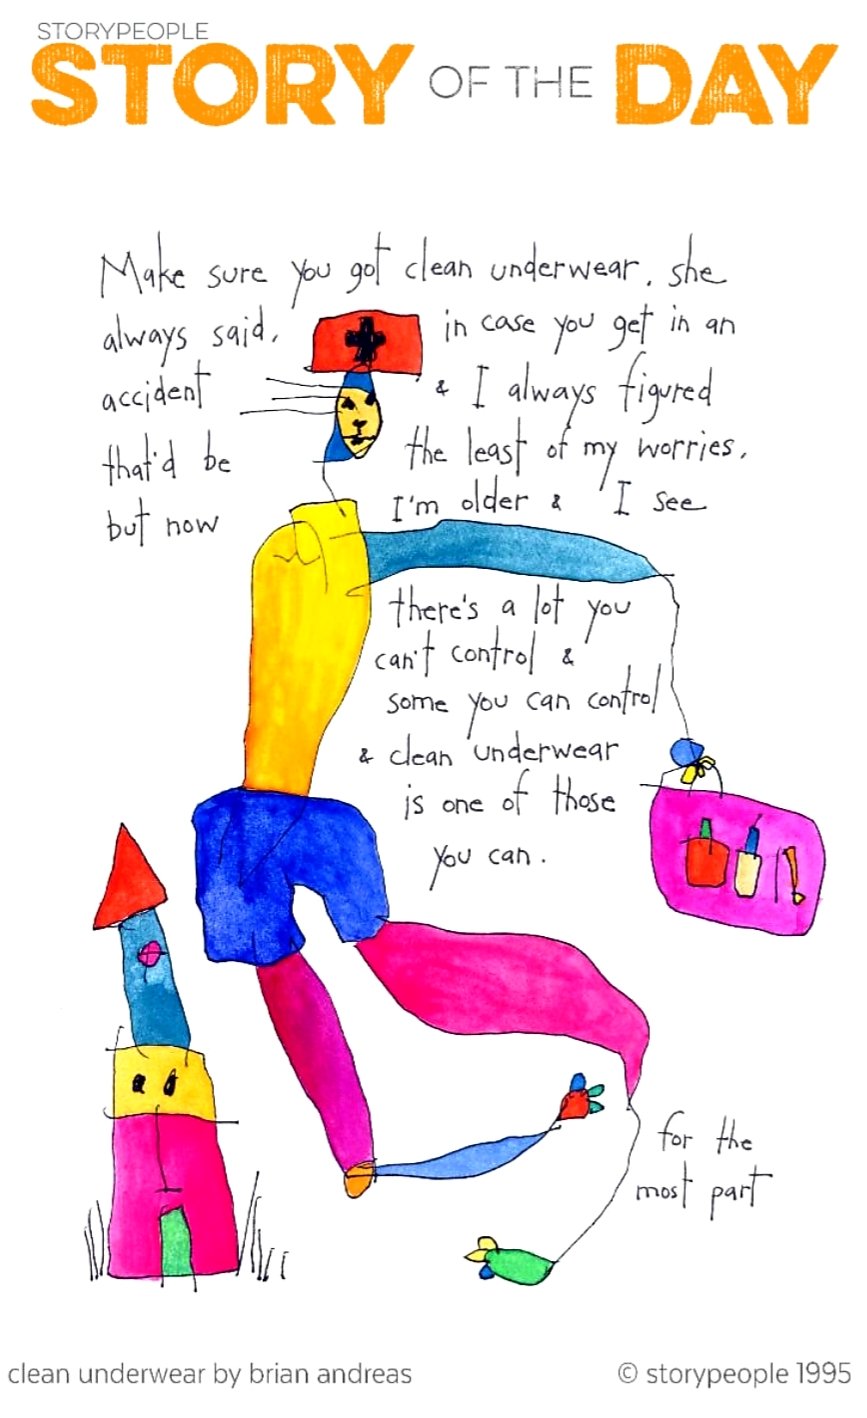 STORYPEOPLE
STORY OF THE DAY
Make sure you got clean underwear, she
always said, in case you get in an
accident & I always figured
that'd be the least of my worries,
but now I'm older & I see
there's a lot you
can't control &
some you can control
& clean underwear
is one of those
you can.
for the
most part
clean underwear by brian andreas © storypeople 1995